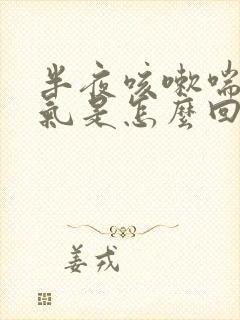 半夜咳嗽喘
氣是怎麼回
姜戎